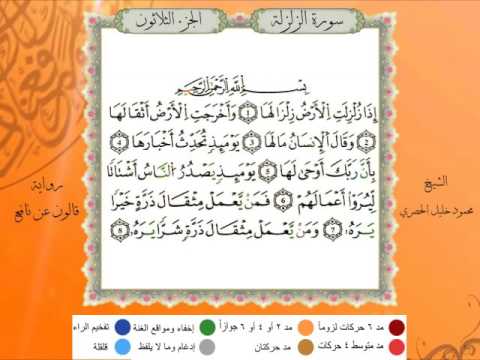 سورة الزلزلة
الجزء الثلاثون
بِسْمِ اللَّهِ الرَّحْمَٰنِ الرَّحِيمِ
إِذَا زُلْزِلَتِ الْأَرْضُ زِلْزَالَهَا ١ وَأَخْرَجَتِ الْأَرْضُ أَثْقَالَهَا
٢ وَقَالَ الْإِنسَانُ مَا لَهَا ٣ يَوْمَئِذٍ تُحَدِّثُ أَخْبَارَهَا ٤
بِأَنَّ رَبَّكَ أَوْحَىٰ لَهَا ٥ يَوْمَئِذٍ يَصْدُرُ النَّاسُ أَشْتَاتًا
لِّيُرَوْا أَعْمَالَهُمْ ٦ فَمَن يَعْمَلْ مِثْقَالَ ذَرَّةٍ خَيْرًا
يَرَهُ ٧ وَمَن يَعْمَلْ مِثْقَالَ ذَرَّةٍ شَرًّا يَرَهُ ٨
الشيخ
محمود خليل الحصري
رواية
قالون عن نافع
مد ٦ حركات لزوماً
مد ٢ أو ٤ أو ٦ جوازاً
إخفاء ومواقع الغنة
تفخيم الراء
مد متوسط ٤ حركات
مد حركتان
إدغام وما لا يلفظ
قلقلة